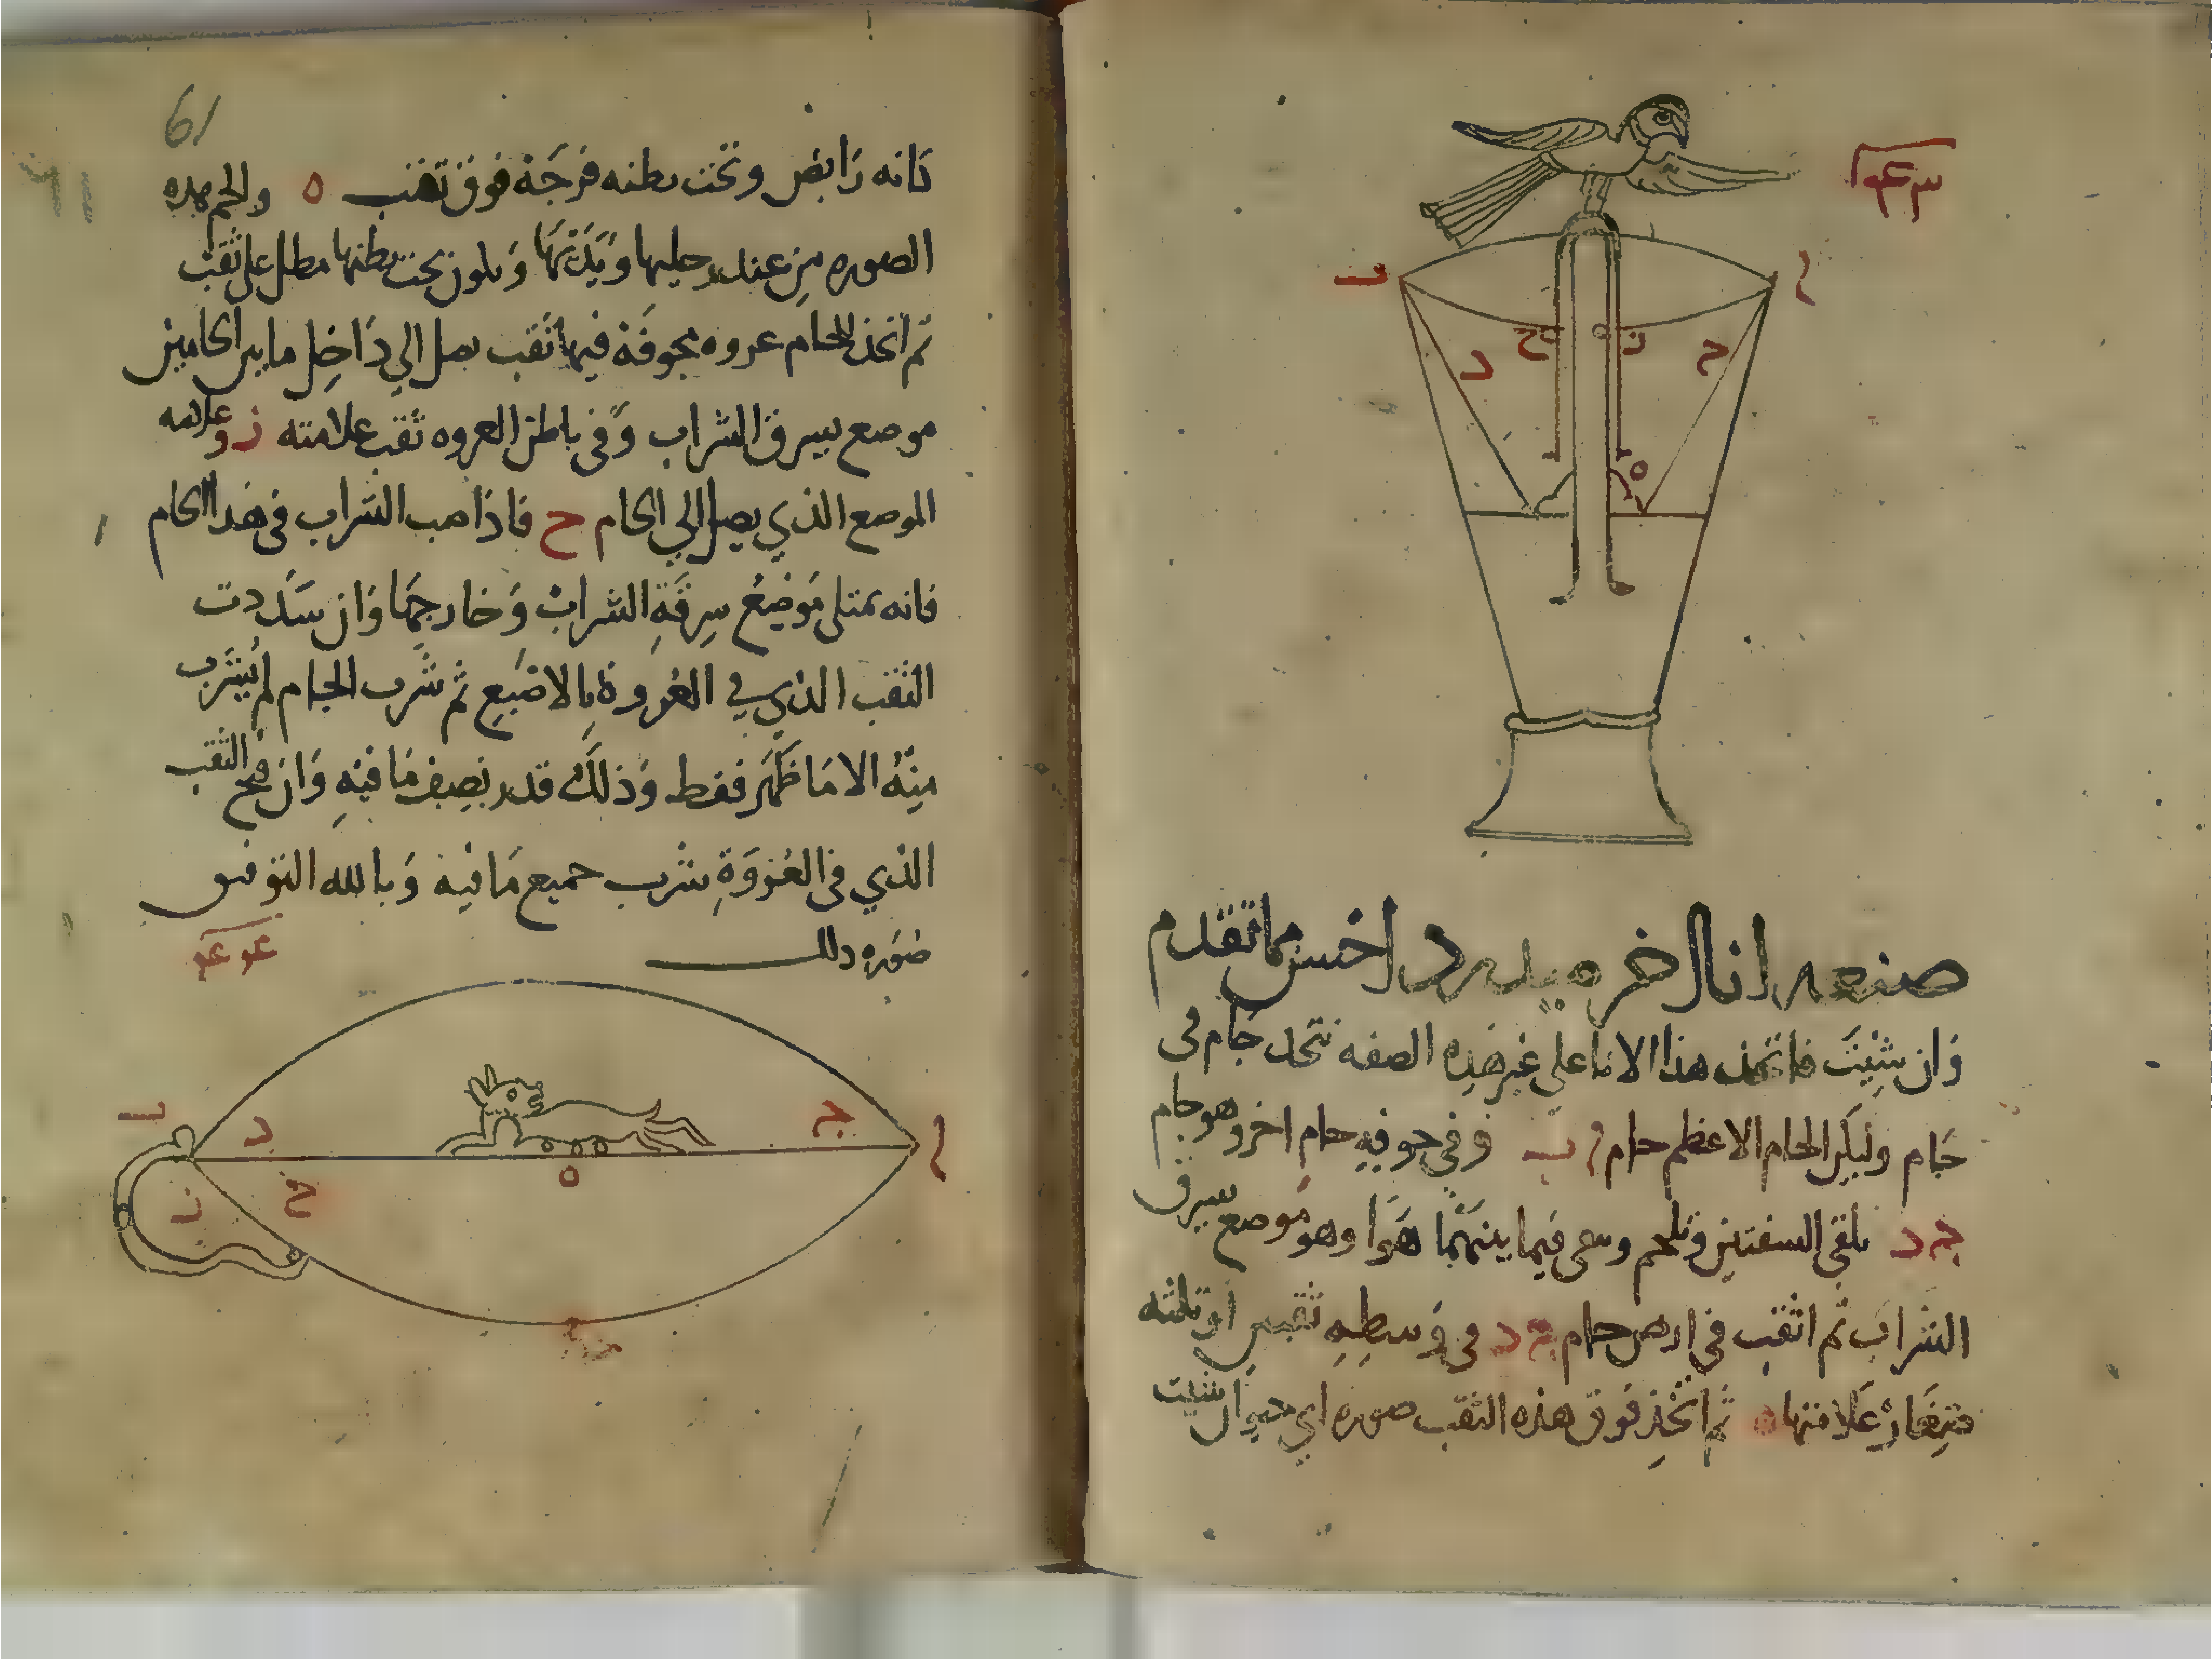 ا
ب
ح
ز
ح
د
ه
صنعه انا اخر مما تقدم
وَان شِيْتَ فاتخذ هذا الانا على غير هَذِه الصفه تتخد جَام فى
جَام وليكن الجام الاعظم جام ا ب وَفي جوفه جام اخر وهو جام
ج د تلقى الشفتين وتلحم وسقى فيما بينهُمَا هَوَا وهو مَوضع يسرق
الشرَاب ثم اثقب في ارض جام ج د فى وَسطِهِ ثقبين اوثلثه
صِغَار عَلامتها ه ثم اتّخِذ فوق هذه الثقب صوره اي حيوان شيت
61
كانه رَابض وتحت بطنه فرجَة فوق ثقب ه والحم هده
الصوره مِن عند رجليها وَيَدَيْهَا وَيلون تحت بطنها مطل على ثقب
ثم اتخذ للجام عروه مجوفَة فيها ثقب يصل الي دَاخِل ما بين الجامين
موضع يسرق الشراب وَفى باطن العروه ثقب علامته ز وعلامه
الموضع الذي يصل الي الجام ح فاذا صب الشراب فى هذا الجام
فانه يمتلى مَوضِعُ سرقَةِ الشرابْ وَخارجهَا وَان سَدَدت
الثقب الذي في العُروةِ بالاصْبعِ ثم شرب الجام لم يُشرَب
مِنهُ الا مَا ظَهَر فقط وَذلكَ قدر نصِف مَا فيهِ وَان فتح الثقب
الذي فى العُروَةِ شرب جميع مَا فيه وَبالله التوفيق
صُوَره دلك
ا
ب
ج
د
ه
ز
ح